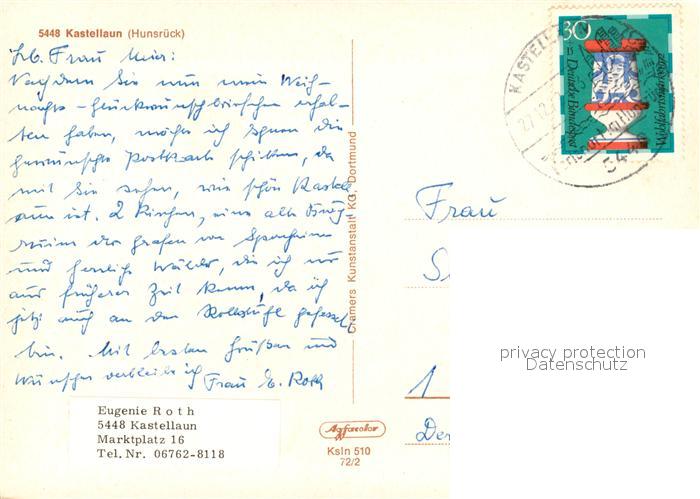 5448 Kastellaun (Hunsrück)
Lb. Frau Meier:
Nachdem Sie nun mein Weih-
nachts-Glückwunschbriefchen erhal-
ten haben, möchte ich Ihnen die
gewünschte Postkarte schicken, da
mit Sie sehen, wie schön Kastell
aun ist. 2 Kirchen, eine alte Burg-
ruine der Grafen von Sponheim
und herrliche Wälder, die ich nur
aus früherer Zeit kenne, da ich
jetzt auch an den Rollstuhl gefesselt
bin. Mit besten Grüßen und
Wünschen verbleibe ich Frau E. Roth
Eugenie Roth
5448 Kastellaun
Marktplatz 16
Tel. Nr. 06762-8118
Cramers Kunstanstalt KG, Dortmund
Agfacolor
Ksln 510
72/2
30
+15
Deutsche Bundespost
Wohlfahrtsmarke
KASTELL
27.12.
544
Frau
1
privacy protection
Datenschutz